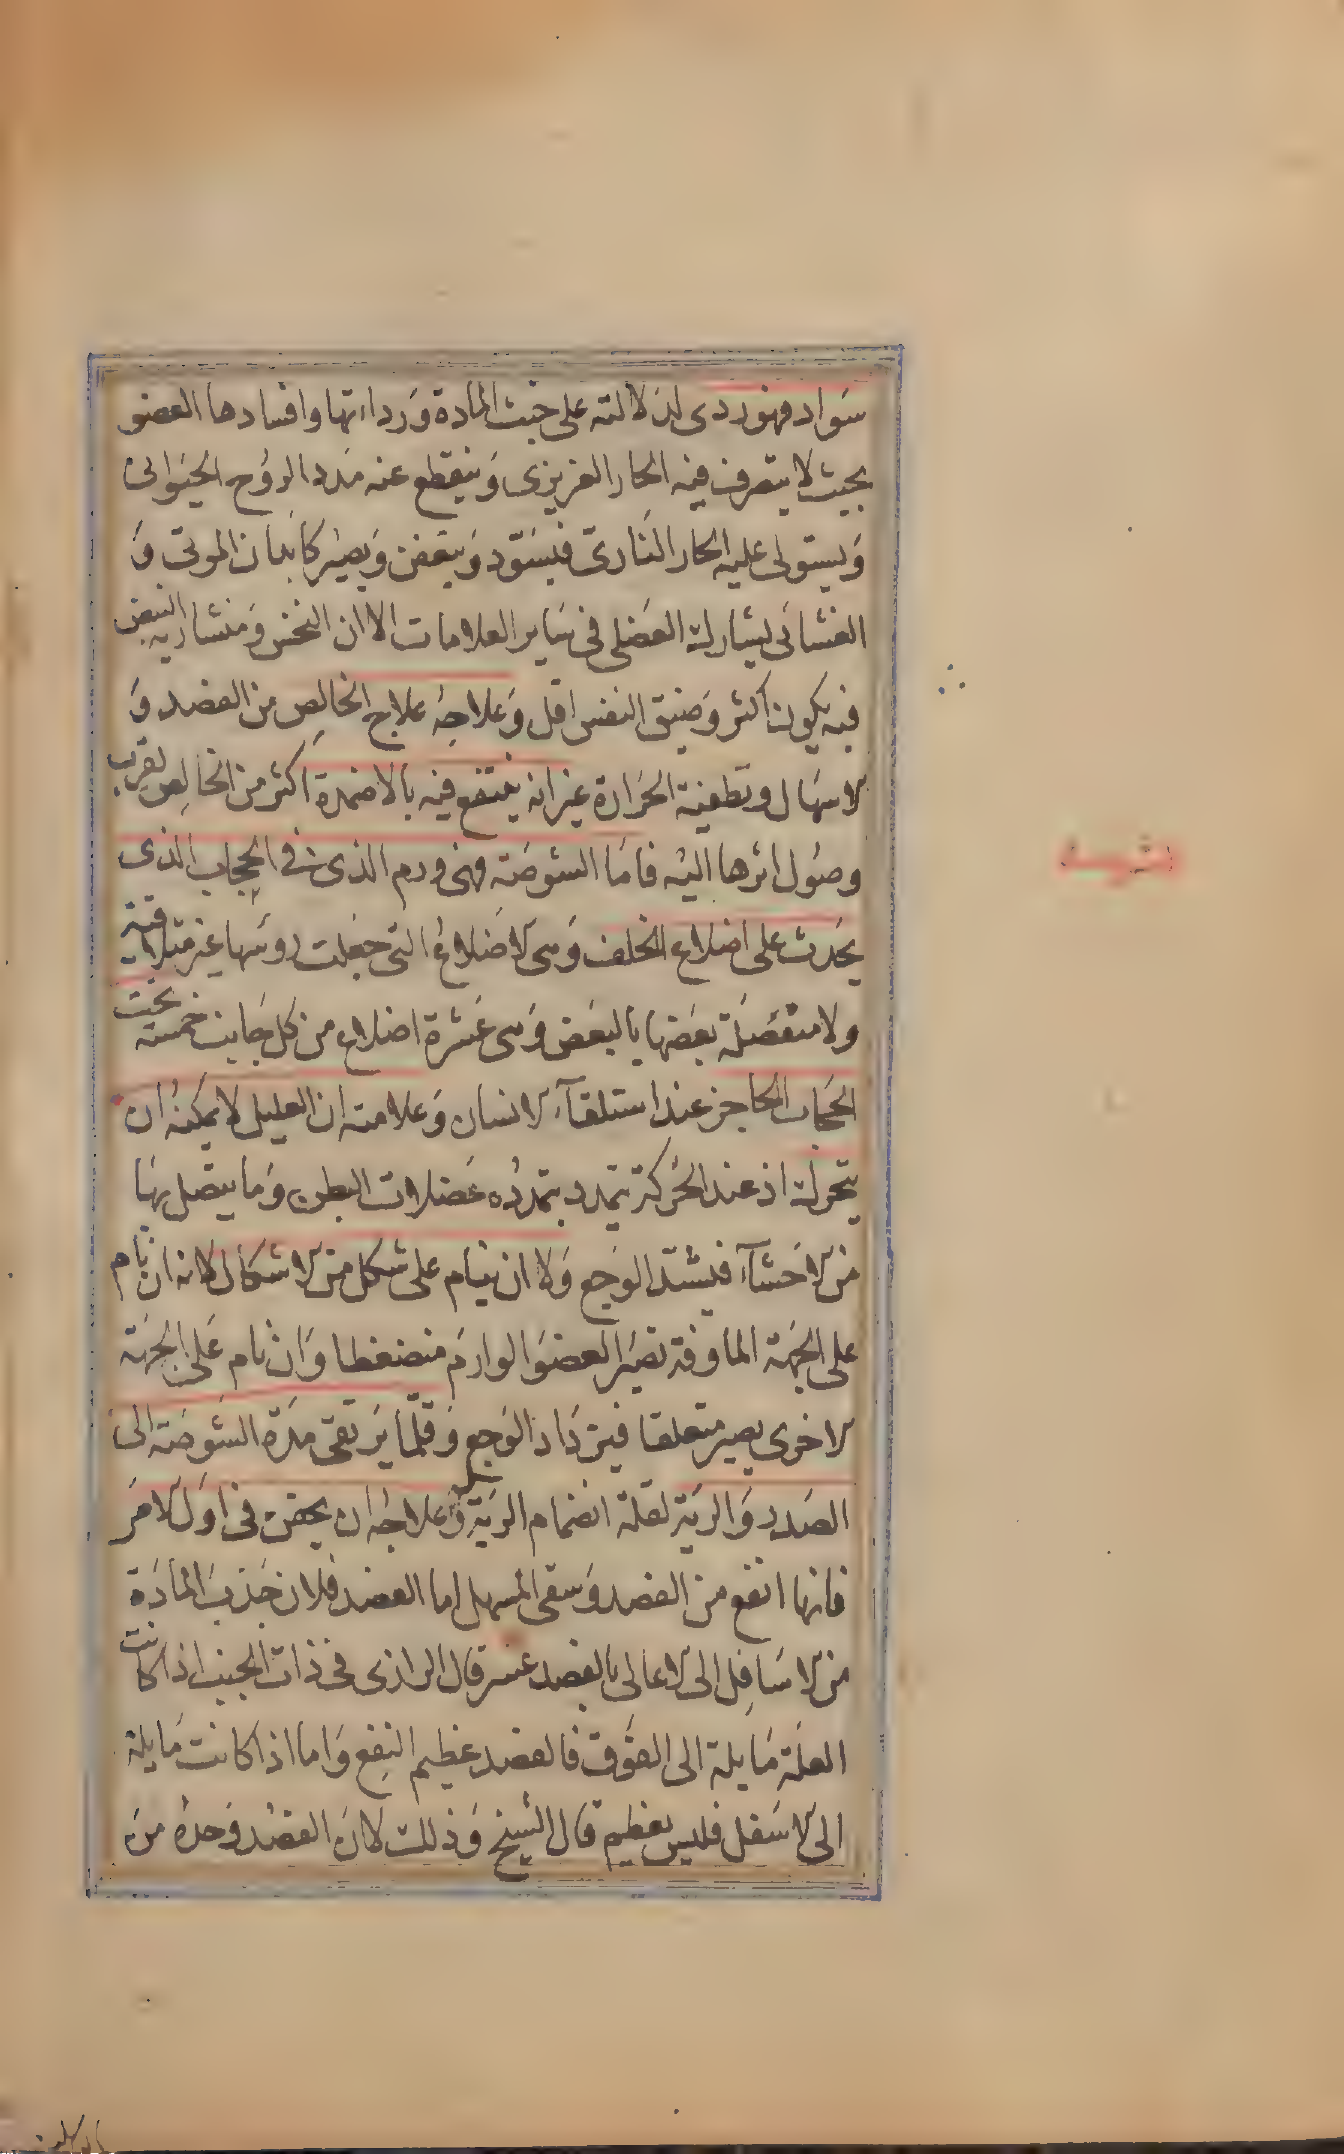 سواد فهو ردى لدلالته على خبث المادة ورداءتها وافسادها العضو
بحيث لا يتصرف فيه الحار الغريزى وينقطع عنه مدد الروح الحيوانى
ويستولى عليه الحار النارى فيسود ويتعفن ويصير كابدان الموتى و
الغشائى يشارك العضلى فى ساير العلامات الا ان النخس ومنشارية النبض
فيه يكون اكثر وضيق النفس اقل وعلاجه علاج الخالص من الفصد و
الاسهال وتطفية الحرارة غير انه ينتفع فيه بالاضمدة اكثر من الخالص لقرب
وصول اثرها اليه فاما الشوصة فهى ورم الذى فى الحجاب الذى
يحدث على اضلاع الخلف وهى الاضلاع التى جعلت روسها غير متلاقية
ولا متصلة بعضها بالبعض وهى عشرة اضلاع من كل جانب خمسة تحت
الحجاب الحاجز عند استلقاء الانسان وعلامته ان العليل لا يمكنه ان
يتحرك اذ عند الحركة يتمدد بتمدده عضلات البطن وما يتصل بها
من الاحشاء فيشتد الوجع ولا ان ينام على شكل من الاشكال لانه ان نام
على الجهة الماوفة تصير العضو الوارم منضغطا وان نام على الجهة
الاخرى يصير متعلقا فيزداد الوجع وقلما يرتقى مدة الشوصة الى
الصدر والرية لقلة انضمام الرية وعلاجه ان يحقن فى اول الامر
فانها انفع من الفصد وسقى المسهل اما الفصد فلان جذب المادة
من الاسافل الى الاعالى بالفصد عسر قال الرازى فى ذات الجنب اذا كانت
العلة مايلة الى الفوق فالفصد عظيم النفع واما اذا كانت مايلة
الى الاسفل فليس بعظيم قال الشيخ وذلك لان الفصد وحده من